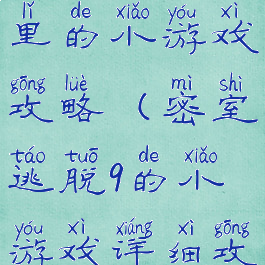 lǐ de xiǎo yóu xì
里的小游戏
gōng lüè mì shì
攻略（密室
táo tuō de xiǎo
逃脱9的小
yóu xì xiáng xì gōng
游戏详细攻